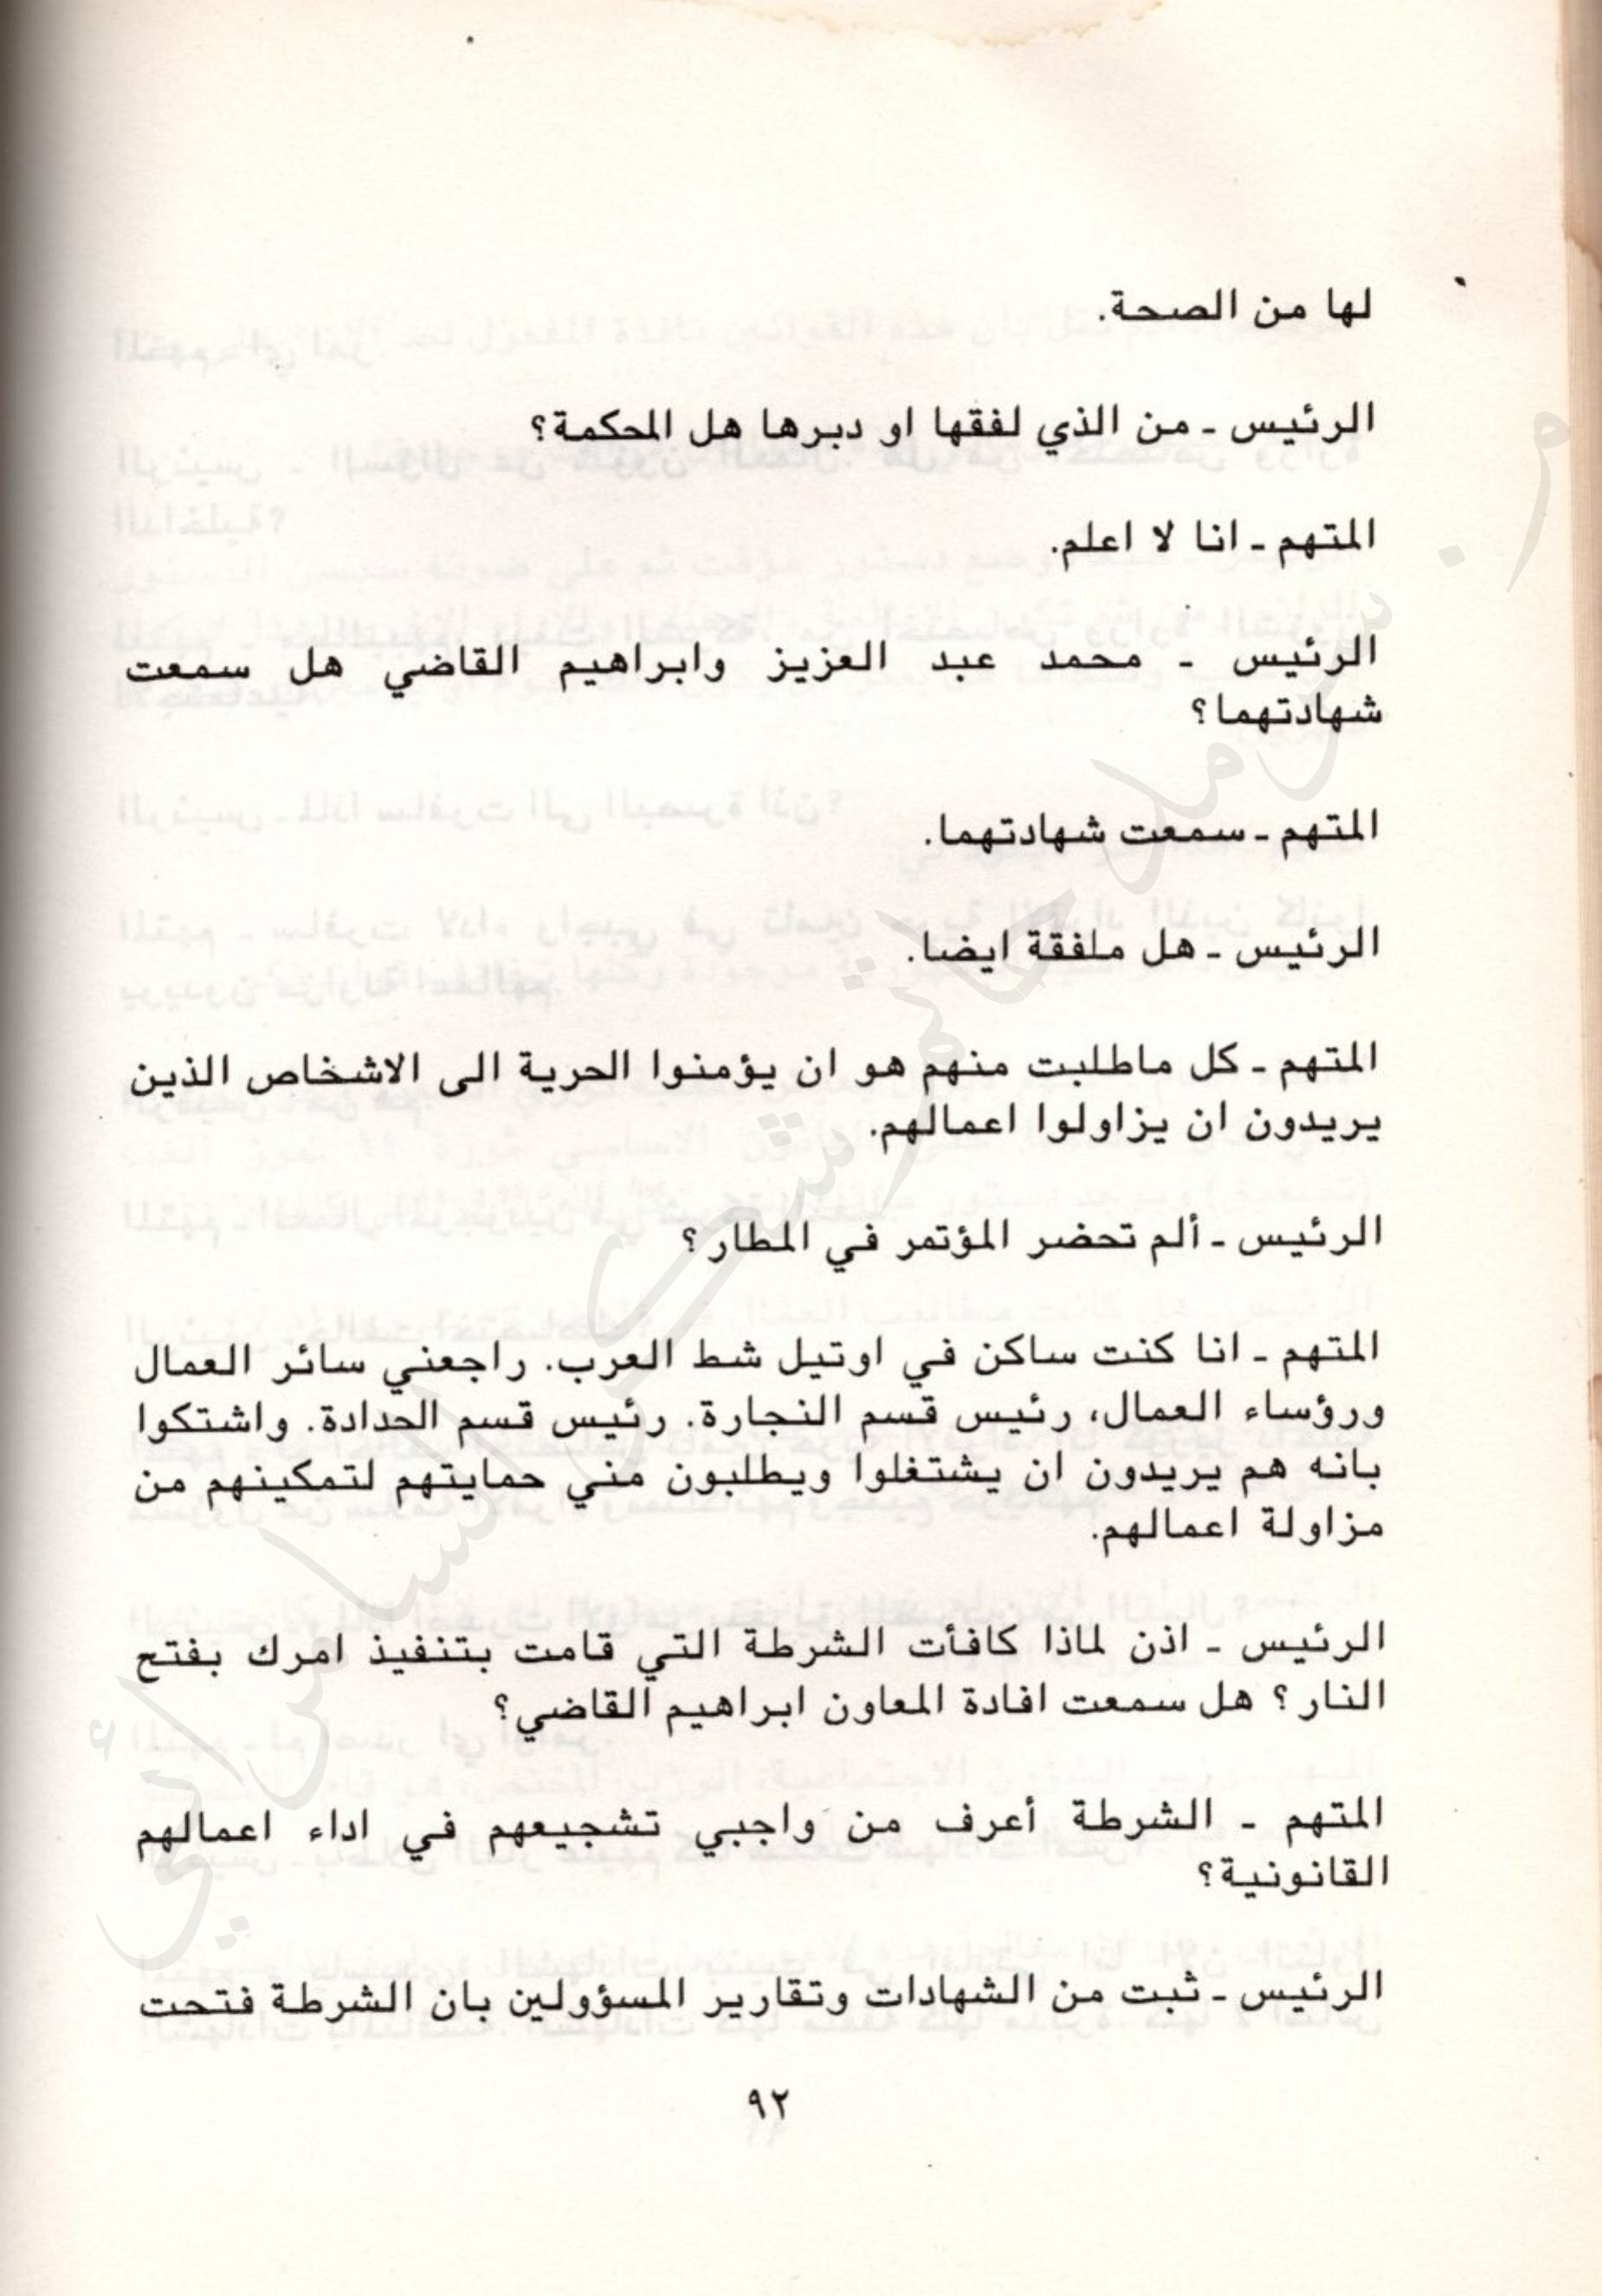 لها من الصحة.
الرئيس ـ من الذي لفقها او دبرها هل المحكمة؟
المتهم ـ انا لا اعلم.
الرئيس ـ محمد عبد العزيز وابراهيم القاضي هل سمعت
شهادتهما؟
المتهم ـ سمعت شهادتهما.
الرئيس ـ هل ملفقة ايضا.
المتهم ـ كل ماطلبت منهم هو ان يؤمنوا الحرية الى الاشخاص الذين
يريدون ان يزاولوا اعمالهم.
الرئيس ـ ألم تحضر المؤتمر في المطار؟
المتهم ـ انا كنت ساكن في اوتيل شط العرب. راجعني سائر العمال
ورؤساء العمال، رئيس قسم النجارة. رئيس قسم الحدادة. واشتكوا
بانه هم يريدون ان يشتغلوا ويطلبون مني حمايتهم لتمكينهم من
مزاولة اعمالهم.
الرئيس ـ اذن لماذا كافأت الشرطة التي قامت بتنفيذ امرك بفتح
النار؟ هل سمعت افادة المعاون ابراهيم القاضي؟
المتهم ـ الشرطة أعرف من واجبي تشجيعهم في اداء اعمالهم
القانونية؟
الرئيس ـ ثبت من الشهادات وتقارير المسؤولين بان الشرطة فتحت
٩٢